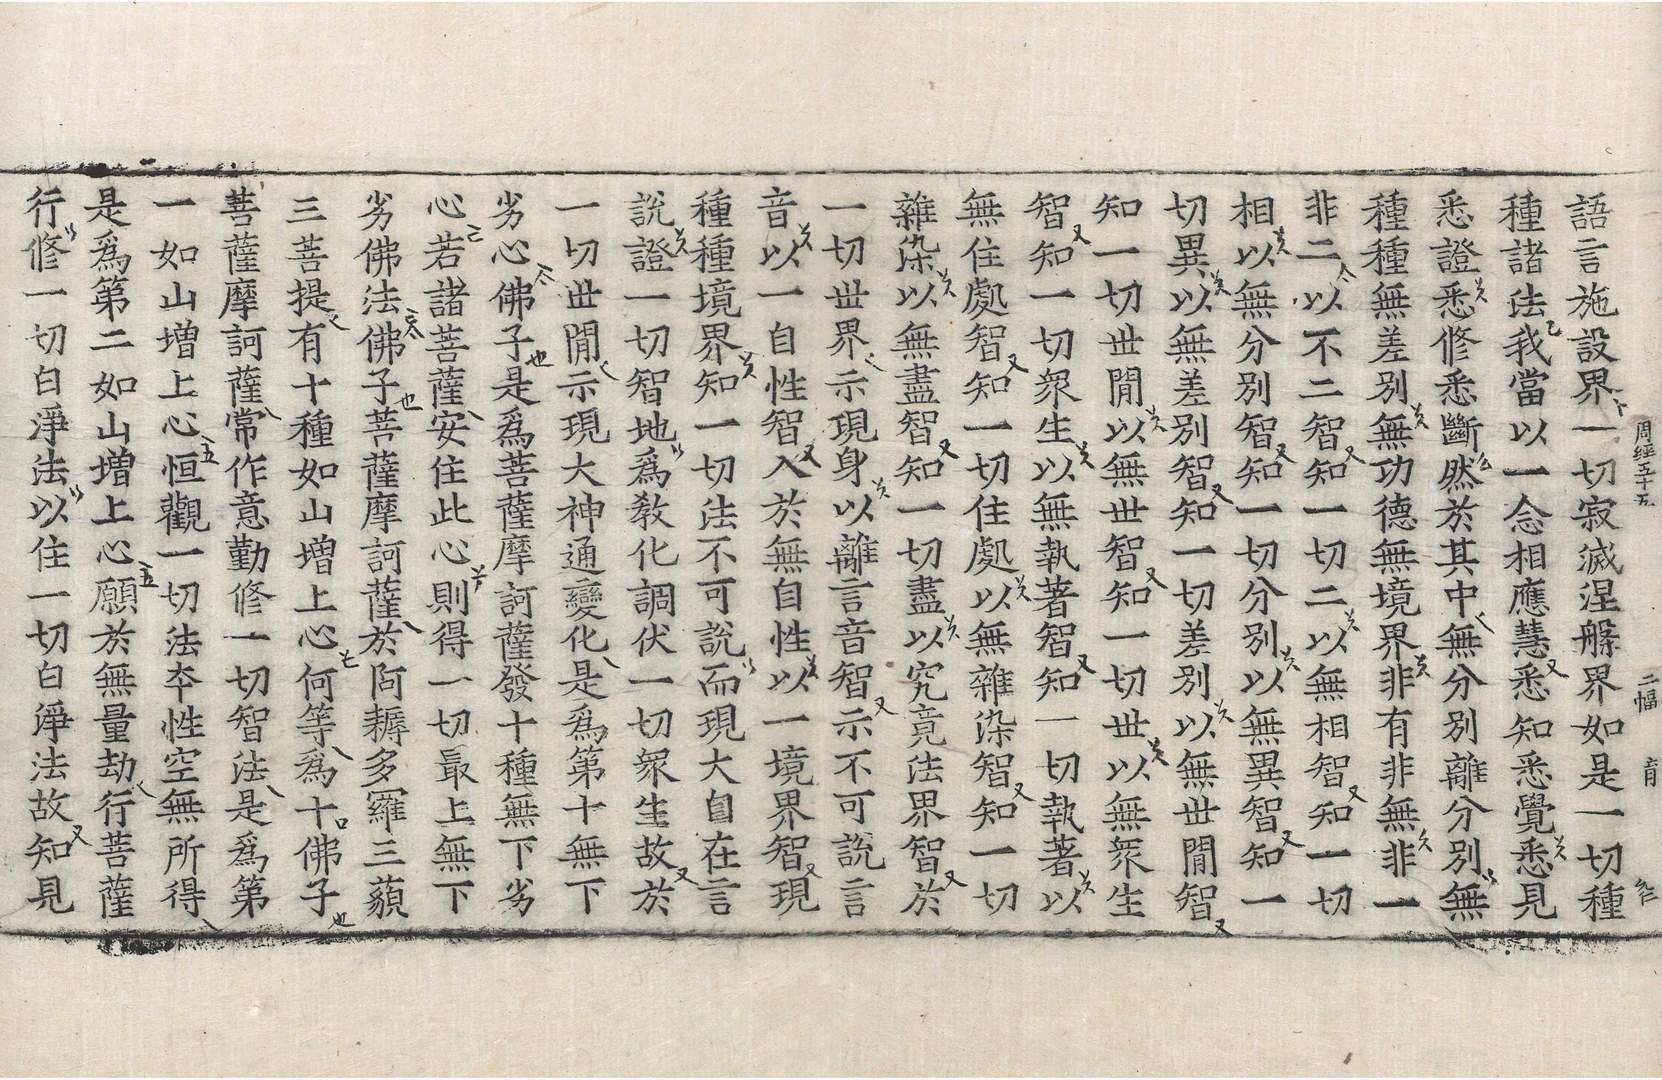 周經五十五 二幅 育 仁
語言施設界一切寂滅涅槃界如是一切種
種諸法我當以一念相應慧悉知悉覺悉見
悉證悉修悉斷然於其中無分別離分別無
種種無差別無功德無境界非有非無非一
非二以不二智知一切二以無相智知一切
相以無分別智知一切分別以無異智知一
切異以無差別智知一切差別以無世閒智
知一切世閒以無世智知一切世以無眾生
智知一切眾生以無執著智知一切執著以
無住處智知一切住處以無雜染智知一切
雜染以無盡智知一切盡以究竟法界智於
一切世界示現身以離言音智示不可說言
音以一自性智入於無自性以一境界智現
種種境界知一切法不可說而現大自在言
說證一切智地為教化調伏一切眾生故於
一切世閒示現大神通變化是為第十無下
劣心佛子是為菩薩摩訶薩發十種無下劣
心若諸菩薩安住此心則得一切最上無下
劣佛法佛子菩薩摩訶薩於阿耨多羅三藐
三菩提有十種如山增上心何等為十佛子
菩薩摩訶薩常作意勤修一切智法是為第
一如山增上心恒觀一切法本性空無所得
是為第二如山增上心願於無量劫行菩薩
行修一切白淨法以住一切白淨法故知見